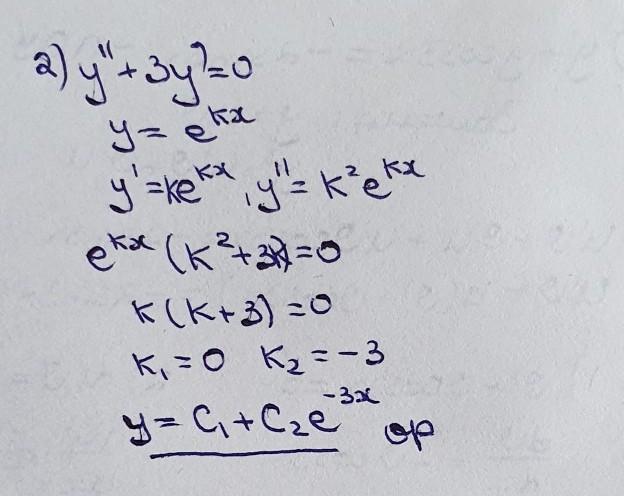 2) y'' + 3y' = 0
y = e^{kx}
y' = ke^{kx}, y'' = k²e^{kx}
e^{kx} (k² + 3k) = 0
k (k + 3) = 0
k₁ = 0 k₂ = -3
y = C₁ + C₂e^{-3x} ор